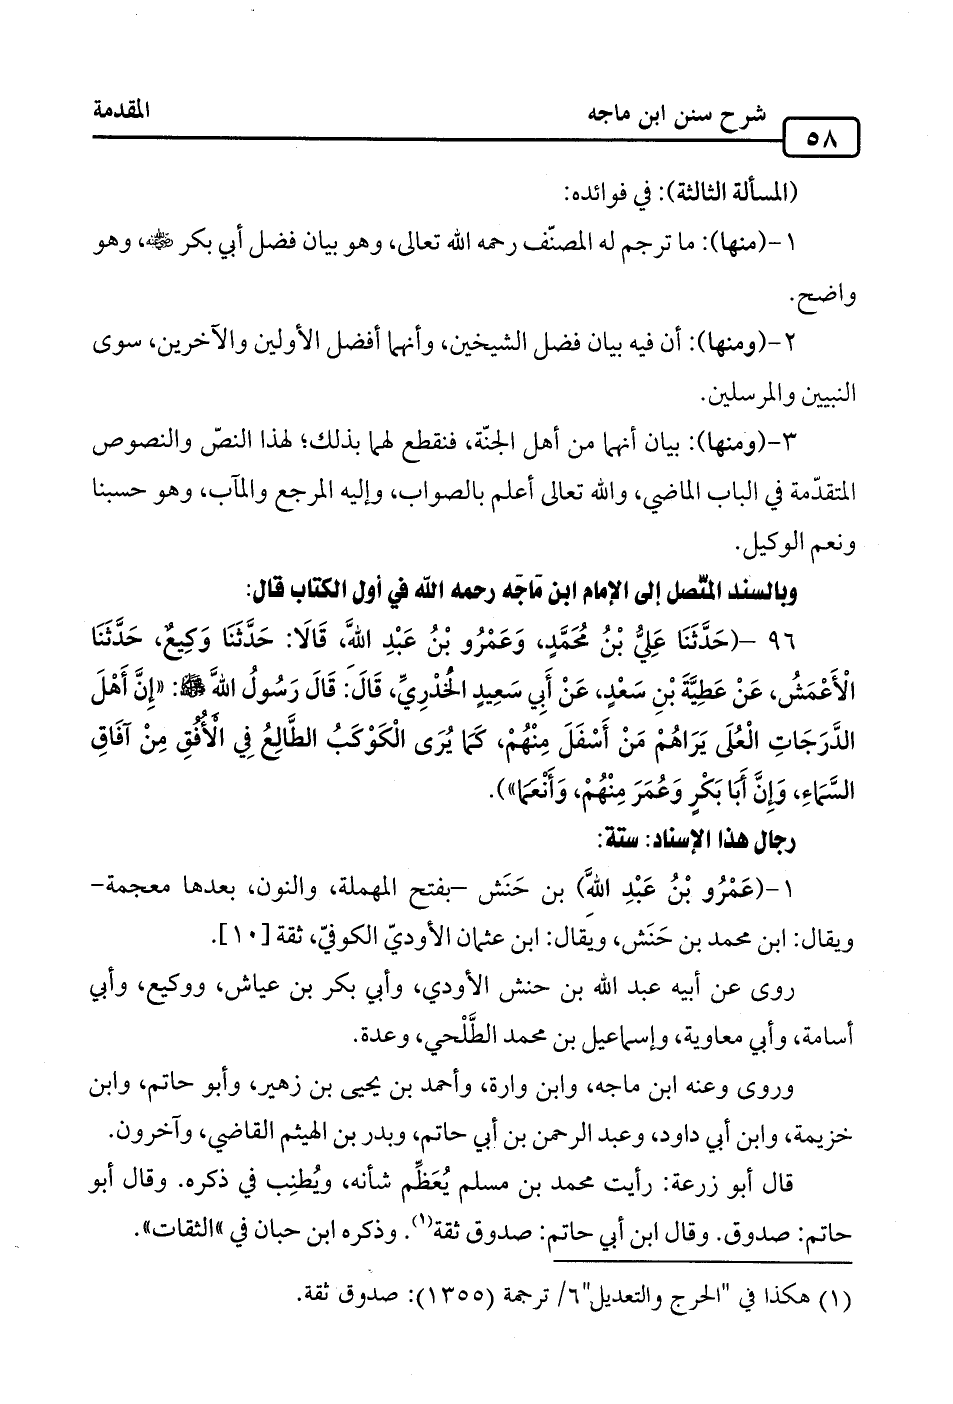 شرح سنن ابن ماجه
المقدمة
٥٨
(المسألة الثالثة): في فوائده:
١-(منها): ما ترجم له المصنّف رحمه الله تعالى، وهو بيان فضل أبي بكر ﵁، وهو
واضح.
٢-(ومنها): أن فيه بيان فضل الشيخين، وأنهما أفضل الأولين والآخرين، سوى
النبيين والمرسلين.
٣-(ومنها): بيان أنهما من أهل الجنّة، فنقطع لهما بذلك؛ لهذا النصّ والنصوص
المتقدّمة في الباب الماضي، والله تعالى أعلم بالصواب، وإليه المرجع والمآب، وهو حسبنا
ونعم الوكيل.
وبالسند المتّصل إلى الإمام ابن مَاجَه رحمه الله في أول الكتاب قال:
٩٦ -(حَدَّثَنَا عَلِيُّ بْنُ مُحَمَّدٍ، وَعَمْرُو بْنُ عَبْدِ اللهِ، قَالَا: حَدَّثَنَا وَكِيعٌ، حَدَّثَنَا
الْأَعْمَشُ، عَنْ عَطِيَّةَ بْنِ سَعْدٍ، عَنْ أَبِي سَعِيدٍ الْخُدْرِيِّ، قَالَ: قَالَ رَسُولُ اللهِ ﷺ: «إِنَّ أَهْلَ
الدَّرَجَاتِ الْعُلَى يَرَاهُمْ مَنْ أَسْفَلَ مِنْهُمْ، كَمَا يُرَى الْكَوْكَبُ الطَّالِعُ فِي الْأُفُقِ مِنْ آفَاقِ
السَّمَاءِ، وَإِنَّ أَبَا بَكْرٍ وَعُمَرَ مِنْهُمْ، وَأَنْعَمَا»).
رجال هذا الإسناد: ستة:
١-(عَمْرُو بْنُ عَبْدِ اللهِ) بن حَنَش -بفتح المهملة، والنون، بعدها معجمة-
ويقال: ابن محمد بن حَنَش، ويقال: ابن عثمان الأوديّ الكوفيّ، ثقة [١٠].
روى عن أبيه عبد الله بن حنش الأودي، وأبي بكر بن عياش، ووكيع، وأبي
أسامة، وأبي معاوية، وإسماعيل بن محمد الطَّلْحي، وعدة.
وروى وعنه ابن ماجه، وابن وارة، وأحمد بن يحيى بن زهير، وأبو حاتم، وابن
خزيمة، وابن أبي داود، وعبد الرحمن بن أبي حاتم، وبدر بن الهيثم القاضي، وآخرون.
قال أبو زرعة: رأيت محمد بن مسلم يُعَظِّم شأنه، ويُطنِب في ذكره. وقال أبو
حاتم: صدوق. وقال ابن أبي حاتم: صدوق ثقة(١). وذكره ابن حبان في «الثقات».
(١) هكذا في "الجرح والتعديل" ٦/ ترجمة (١٣٥٥): صدوق ثقة.